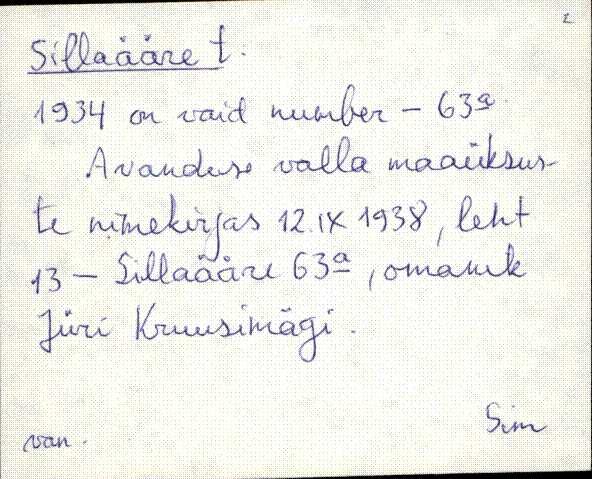 2
Sillaääre t.
1934 on vaid number – 63a.
Avanduse valla maaüksus-
te nimekirjas 12.IX 1938, leht
13 – Sillaääre 63a, omanik
Jüri Kruusimägi.
Sim
van.